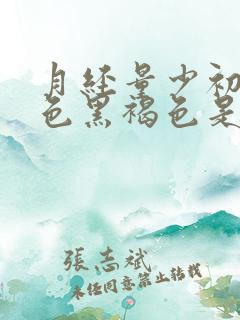 月经量少初
色黑褐色是
張志斌
未经同意禁止转载